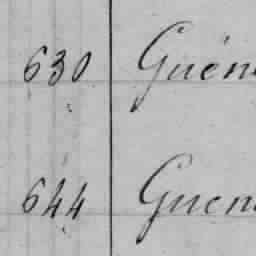 630 Guén
644 Guen